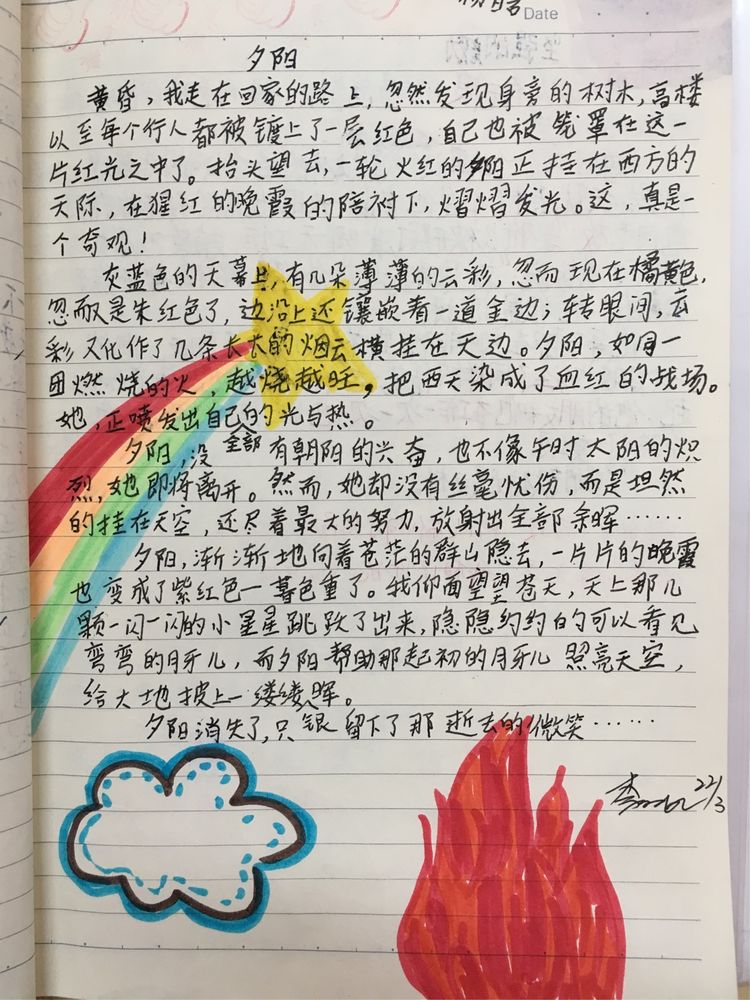 Date
夕阳
黄昏，我走在回家的路上，忽然发现身旁的树木，高楼
以至每个行人都被镀上了一层红色，自己也被笼罩在这一
片红光之中了。抬头望去，一轮火红的夕阳正挂在西方的
天际，在猩红的晚霞的陪衬下，熠熠发光。这，真是一
个奇观！
灰蓝色的天幕上，有几朵薄薄的云彩，忽而现在橘黄色，
忽而又是朱红色了，边沿上还镶嵌着一道金边；转眼间，云
彩又化作了几条长长的烟云横挂在天边。夕阳，如同一
团燃烧的火，越烧越旺，把西天染成了血红的战场。
她，正喷发出自己的光与热。
夕阳，没全部有朝阳的兴奋，也不像午时太阳的炽
烈，她即将离开。然而，她却没有丝毫忧伤，而是坦然
的挂在天空，还尽着最大的努力，放射出全部余晖……
夕阳，渐渐地向着苍茫的群山隐去，一片片的晚霞
也变成了紫红色—暮色重了。我仰面望望苍天，天上那几
颗一闪一闪的小星星跳跃了出来，隐隐约约的可以看见
弯弯的月牙儿，而夕阳帮助那起初的月牙儿照亮天空，
给大地披上一缕缕晖。
夕阳消失了，只银留下了那逝去的微笑……
22/3